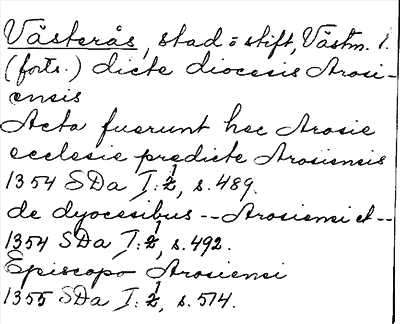 Västerås, stad o stift, Västm. l.
(forts.) dicte diocesis Arosi-
ensis
Acta fuerunt hec Arosie
ecclesie predicte Arosiensis
1354 SDa I: 1/2, s. 489.
de dyocesibus -- Arosiensi et --
1354 SDa I: 1/2, s. 492.
Episcopo Arosiensi
1355 SDa I: 1/2, s. 574.